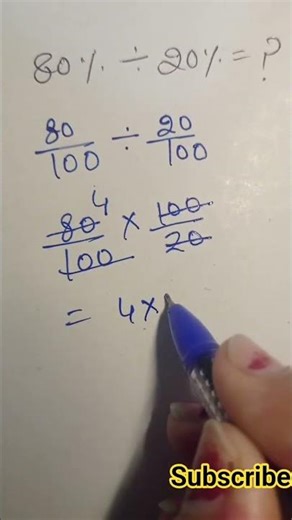 80% ÷ 20% = ?
80/100 ÷ 20/100
4
80/100 × 100/20
= 4×
Subscribe